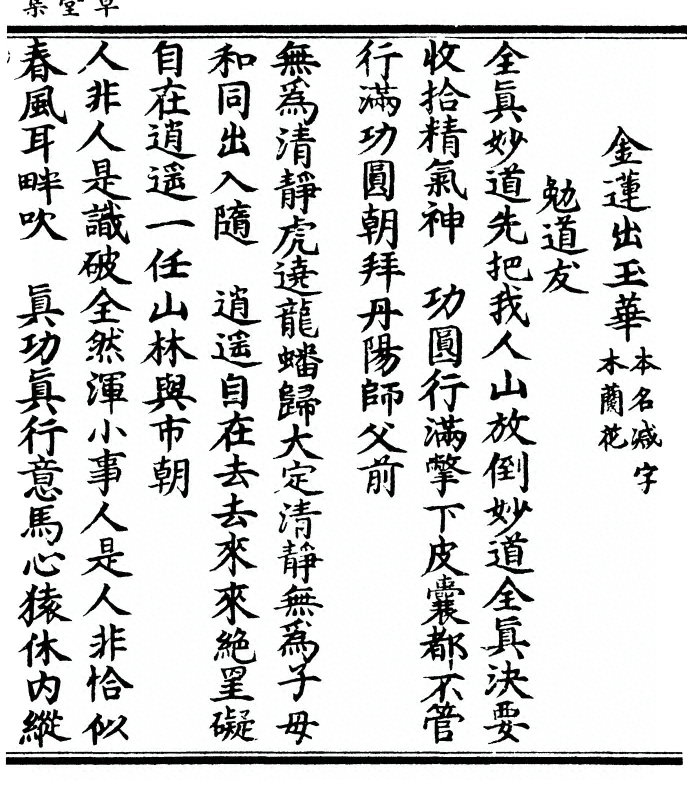 草堂集
金蓮出玉華 本名减字木蘭花
勉道友
全眞妙道先把我人山放倒妙道全眞決要
收拾精氣神 功圓行滿撆下皮囊都不管
行滿功圓朝拜丹陽師父前
無爲清靜虎遶龍蟠歸大定清靜無爲子母
和同出入隨 逍遥自在去去來來絶罣礙
自在逍遥一任山林與市朝
人非人是識破全然渾小事人是人非恰似
春風耳畔吹 眞功眞行意馬心猿休内縱